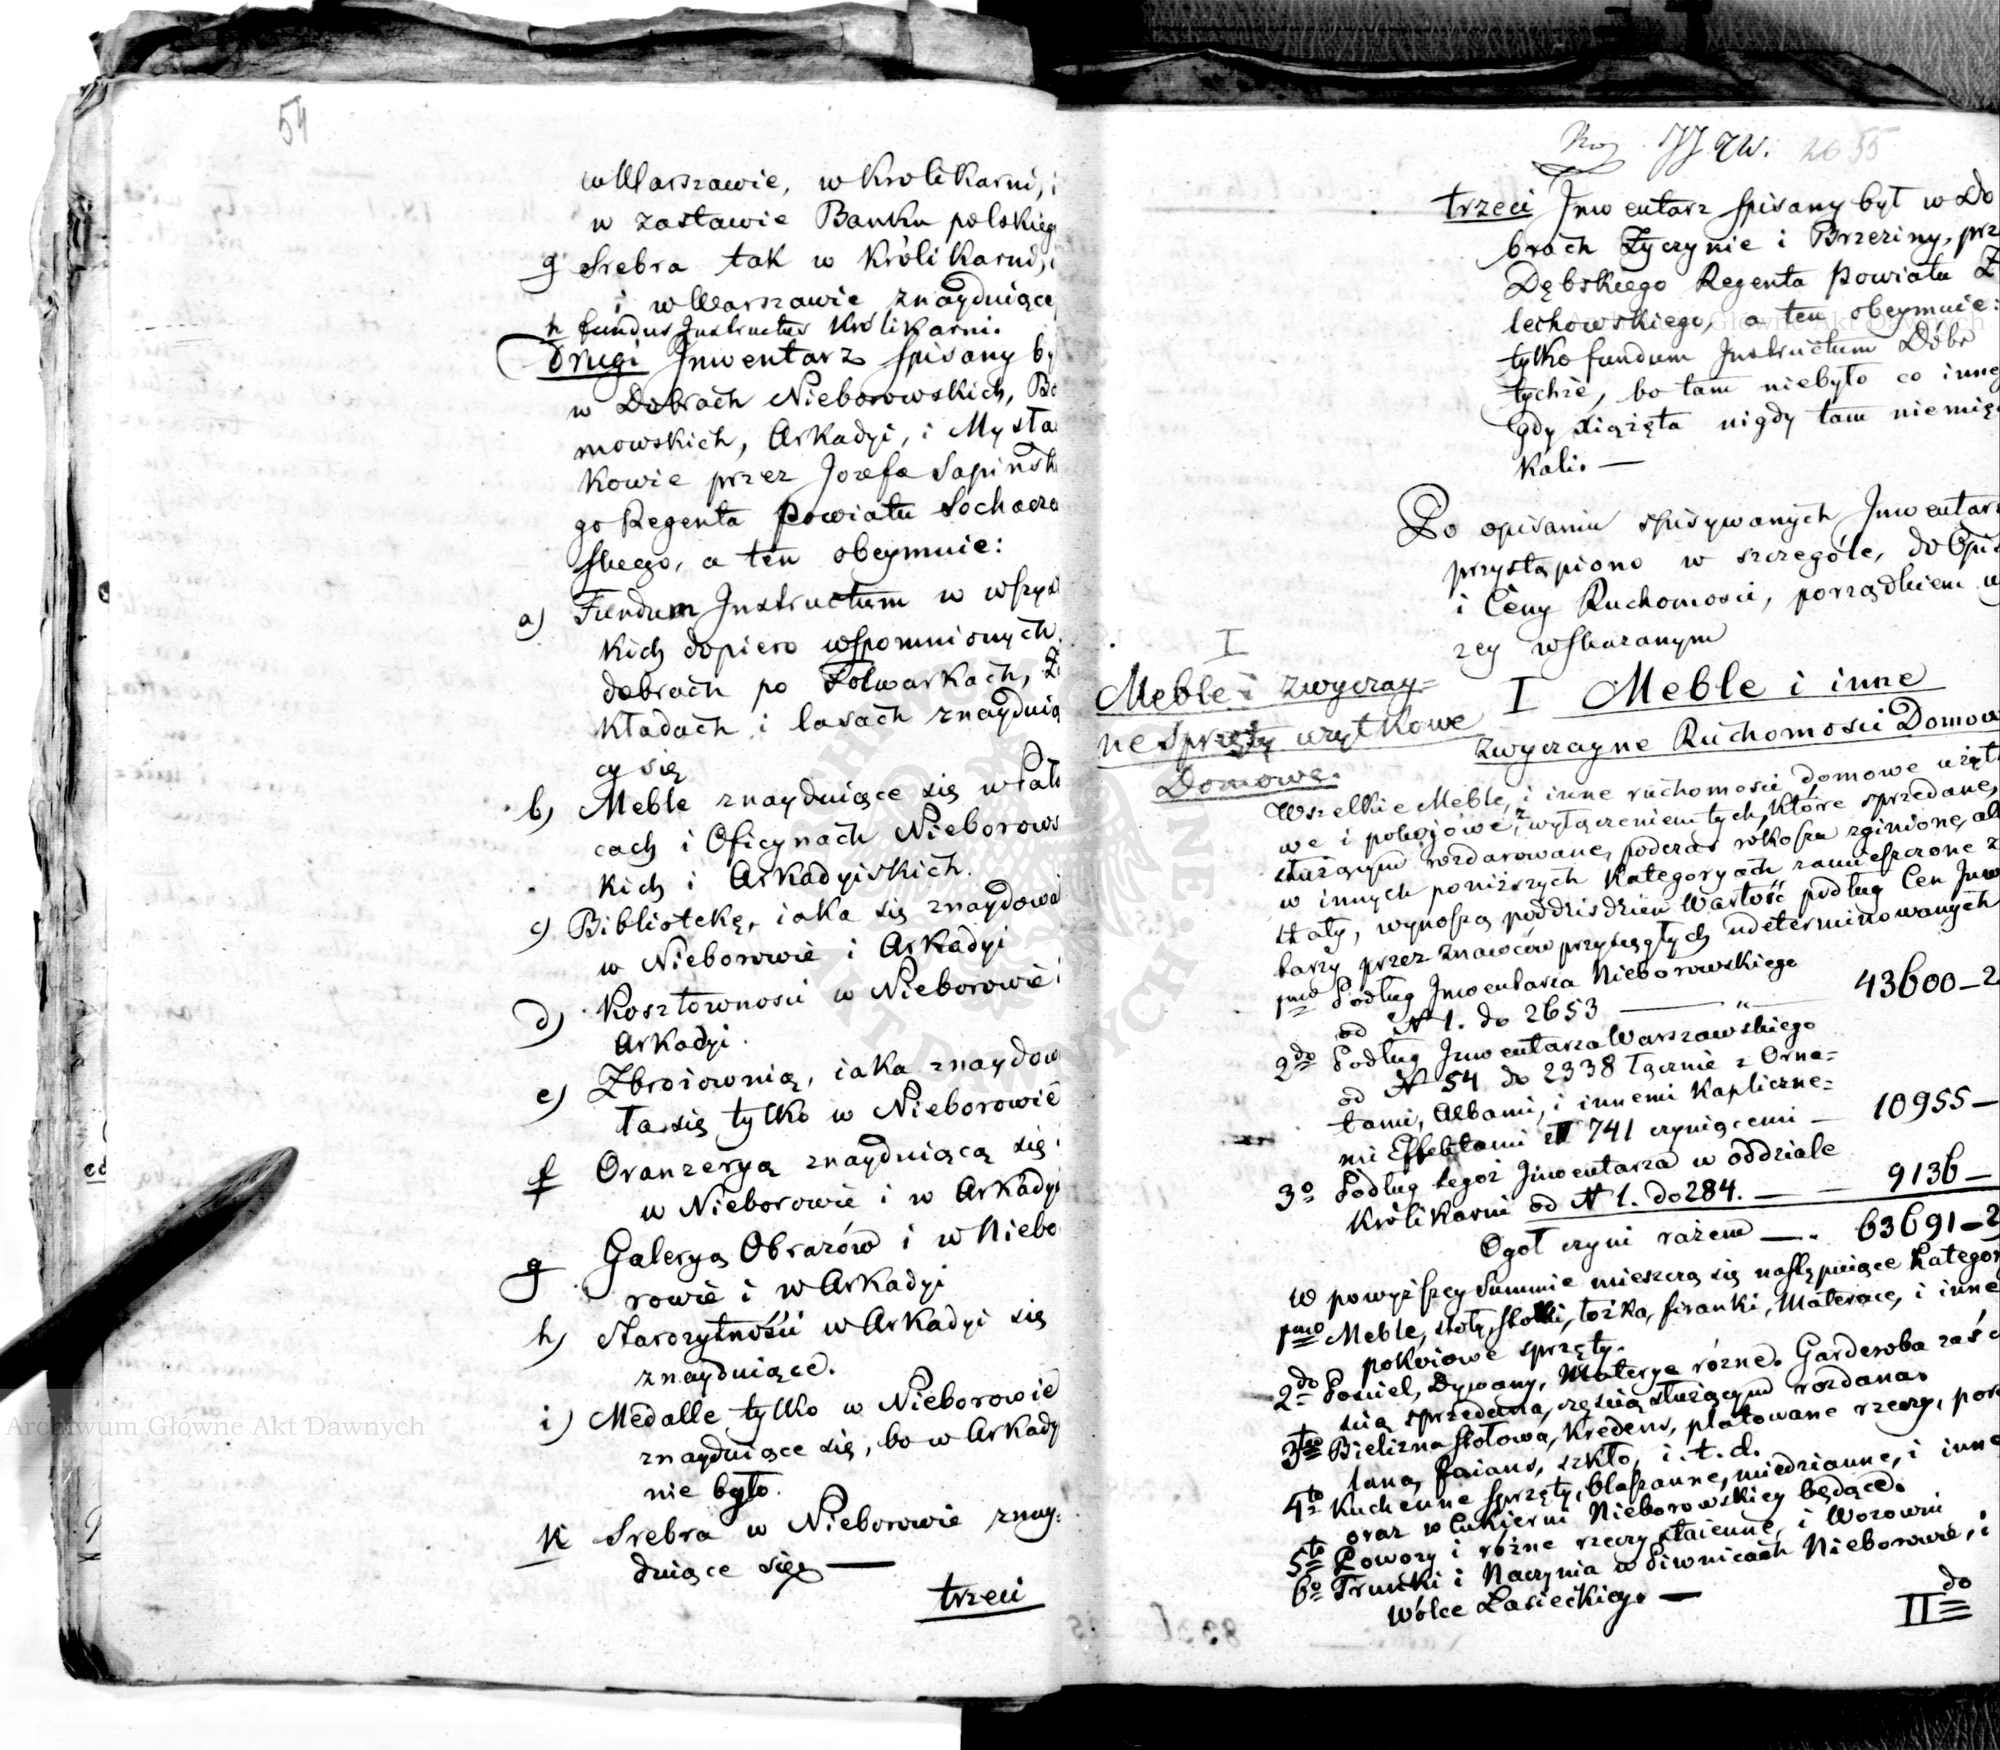 54
w Warszawie, w Krolikarni, i
w zastawie Banku polskieg
g Srebra tak w Królikarni, i
i w Warszawie znayduiące
h fundus Instructus Królikarni.
Drugi Inwentarz spisany by
w Dobrach Nieborowskich, Bo
mowskich, Arkadyi, i Mysła
kowie przez Jozefa Sapińsk
go Regenta Powiatu Sochacze
skiego, a ten obeymuie:
a) Fundum Instructum w wszys
kich dopiero wspomnionych
dobrach po Folwarkach, Za
kładach i lasach znayduią
cy się
b) Meble znayduiące się w Pała
cach i Oficynach Nieborows
kich i Arkadyiskich.
c) Bibliotekę, iaka się znaydowa
w Nieborowie i Arkadyi
d) Kosztownosci w Nieborowie i
Arkadyi.
e) Zbroiownią, iaka znaydow
ła się tylko w Nieborowie
f Oranzeryą znayduiącą się
w Nieborowie i w Arkadyi
g Galeryą Obrazów i w Niebo
rowie i w Arkadyi
h) Starożytności w Arkadyi się
znayduiące.
i) Medalle tylko w Nieborowie
znayduiące się, bo w Arkady
nie było.
k Srebra w Nieborowie znay=
duiące się —
trzeci
26 55
trzeci Inwentarz spisany był w Do
brach Życzynie i Brzeziny, prz
Dębskiego Regenta Powiatu Ż
lechowskiego, a ten obeymuie:
tylko fundum Instructum Dóbr
tychże, bo tam niebyło co inneg
gdy Xiążęta nigdy tam niemię
kali. —
Po opisaniu spisywanych Inwentarz
przystąpiono w szczególe, do Opis
i Ceny Ruchomosci, porządkiem w
zey wskazanym
I
Meble i zwyczay=
ne Sprzęty użytkowe
Domowe.
I Meble i inne
zwyczayne Ruchomosci Domow
Wszelkie Meble, i inne ruchomosci domowe użyt
we i pokojowe, z wyłączeniem tych, które sprzedane,
służącym rozdarowane, podczas rokoszu zginione, al
w innych poniższych Kategoryach zamieszczone z
stały, wynoszą poddziśdzien Wartość podług Cen Inw
tarzy przez znawców przysięgłych udeterminowanych
1mo Podług Inwentarza Nieborowskiego
od N 1. do 2653 — " — 43600 — 2
2do Podług Inwentarza Warszawskiego
od N 54 do 2338 łącznie z Orna=
tami, Albami, i innemi Kapliczne=
mi Effektami N 741 czyniącemi — 10955 —
3o Podług tegoż Inwentarza w oddziale
Królikarni od N 1. do 284. — — 9136 —
Ogoł czyni razem — . 63691 — 2
W powyższey Summie mieszczą się nastęμpuiące Kategor
1mo Meble, stoły, stołki, łóżka, firanki, Materace, i inne
pokoiowe sprzęty.
2do Pościel, Dywany, Materye rózne. Garderoba zaś c
ścią sprzedana, częscią służącym rozdana.
3tio Bielizna stołowa, Kredens, platowane rzeczy, porc
lana, faians, szkło, i. t. d.
4to Kuchenne sprzęty, blaszanne, miedzianne, i inne
oraz w Cukierni Nieborowskiey będące.
5to Powozy i różne rzeczy staienne, i Wozowni
6o Trunki i Naczynia w Piwnicach Nieborowie, i
Wólce Łasieckiey. —
IIdo